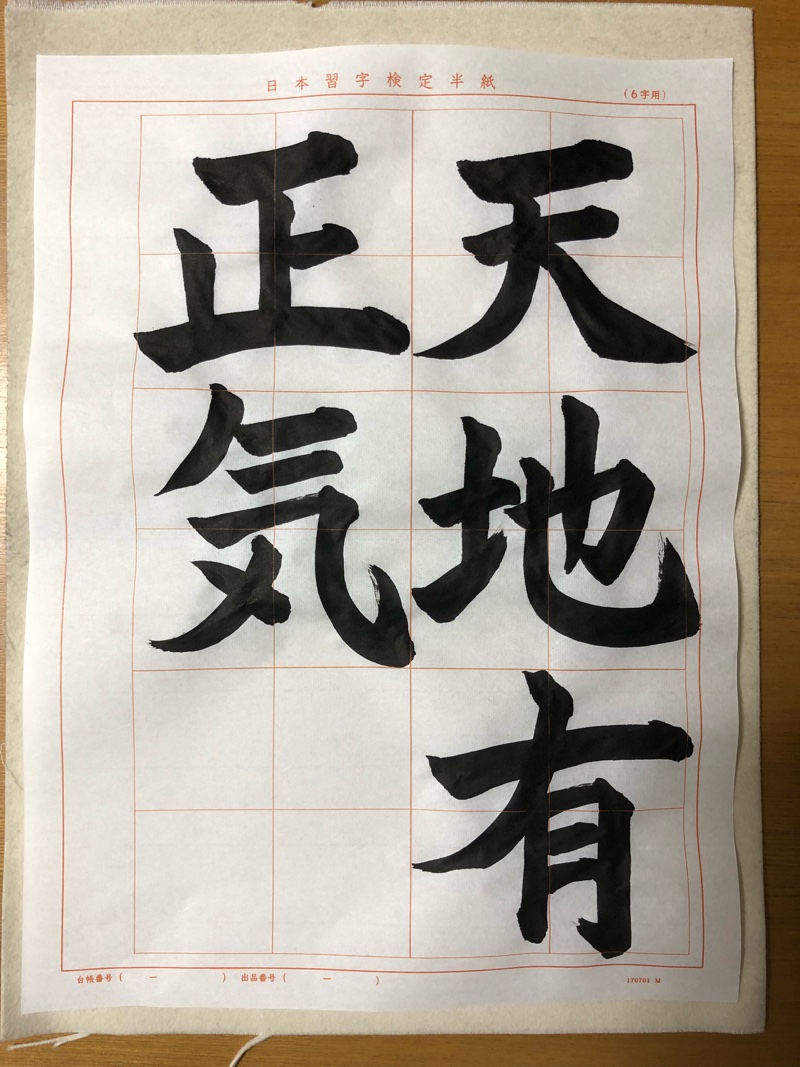 日本習字検定半紙
(6字用)
天地有
正気
台帳番号(　ー　)　出品番号(　ー　)
170701 M